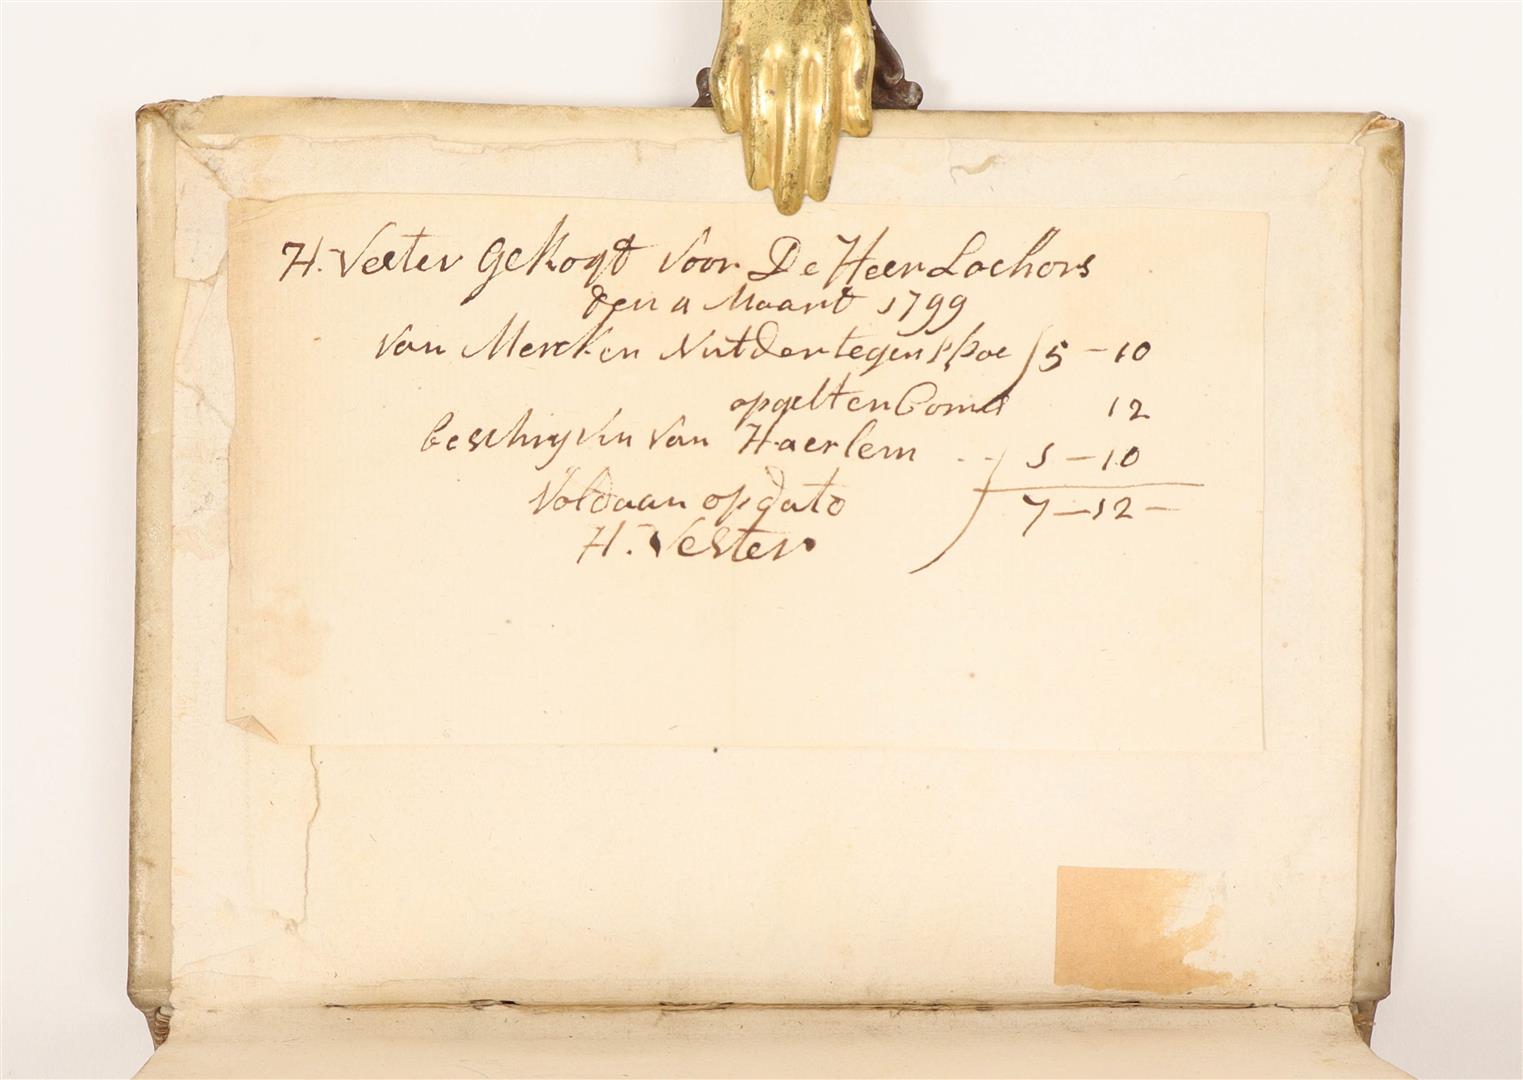 H. Vester gekogt voor De Heer Lochors
den 11 Maart 1799
van Mercken Nut der tegenspoe ƒ 5 - 10
opgelt en Comis 12
beschryvin van Haerlem . . ƒ 1 - 10
Voldaan op dato ƒ 7 - 12 -
H. Vester